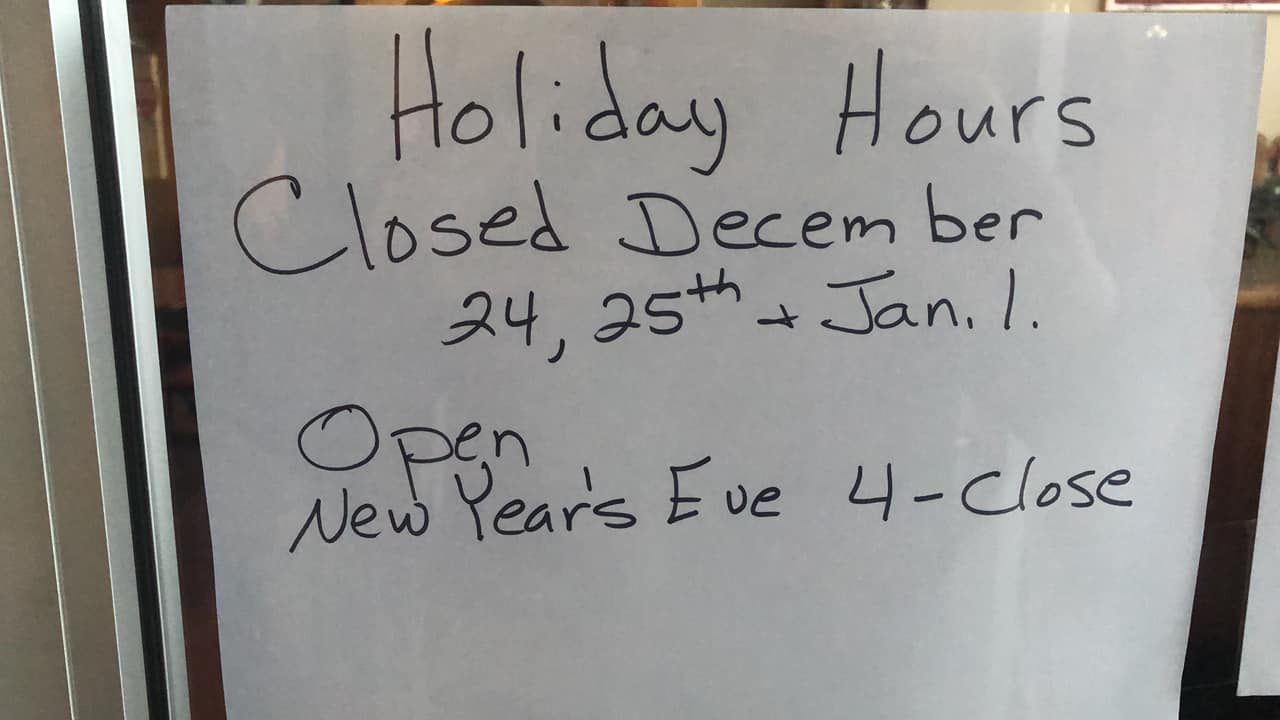 Holiday Hours
Closed December
24, 25th + Jan. 1.
Open
New Year's Eve 4-Close